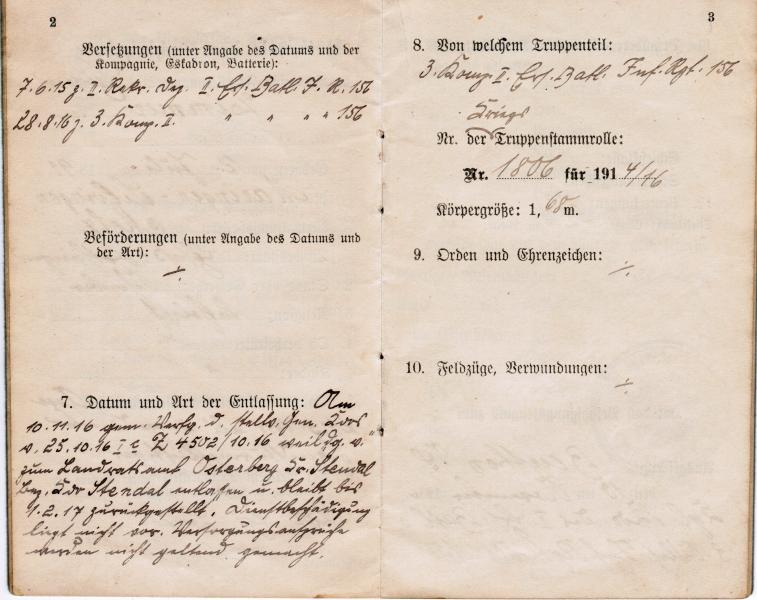 2
Versetzungen (unter Angabe des Datums und der
Kompagnie, Eskadron, Batterie):
7.6.15 z. II. Rekr. Dep. II. Ers. Batl. J. R. 156
28.8.16 z. 3. Komp. II. " " " " 156
Beförderungen (unter Angabe des Datums und
der Art):
-/-
7. Datum und Art der Entlassung: Am
10.11.16 gem. Verfg. d. stellv. Gen. Kdos
v. 25.10.16 I c Z 4502/10.16 weil
zum Landratsamt Osterberg Kr. Stendal
Bez. Kdo Stendal entlassen u. bleibt bis
1.2.17 zurückgestellt. Dienstbeschädigung
liegt nicht vor. Versorgungsansprüche
werden nicht geltend gemacht.
3
8. Von welchem Truppenteil:
3. Komp. II. Ers. Batl. Inf. Rgt. 156
Kriegs
Nr. der Truppenstammrolle:
Nr. 1806 für 1914/16
Körpergröße: 1,68 m.
9. Orden und Ehrenzeichen: -/-
10. Feldzüge, Verwundungen:
-/-